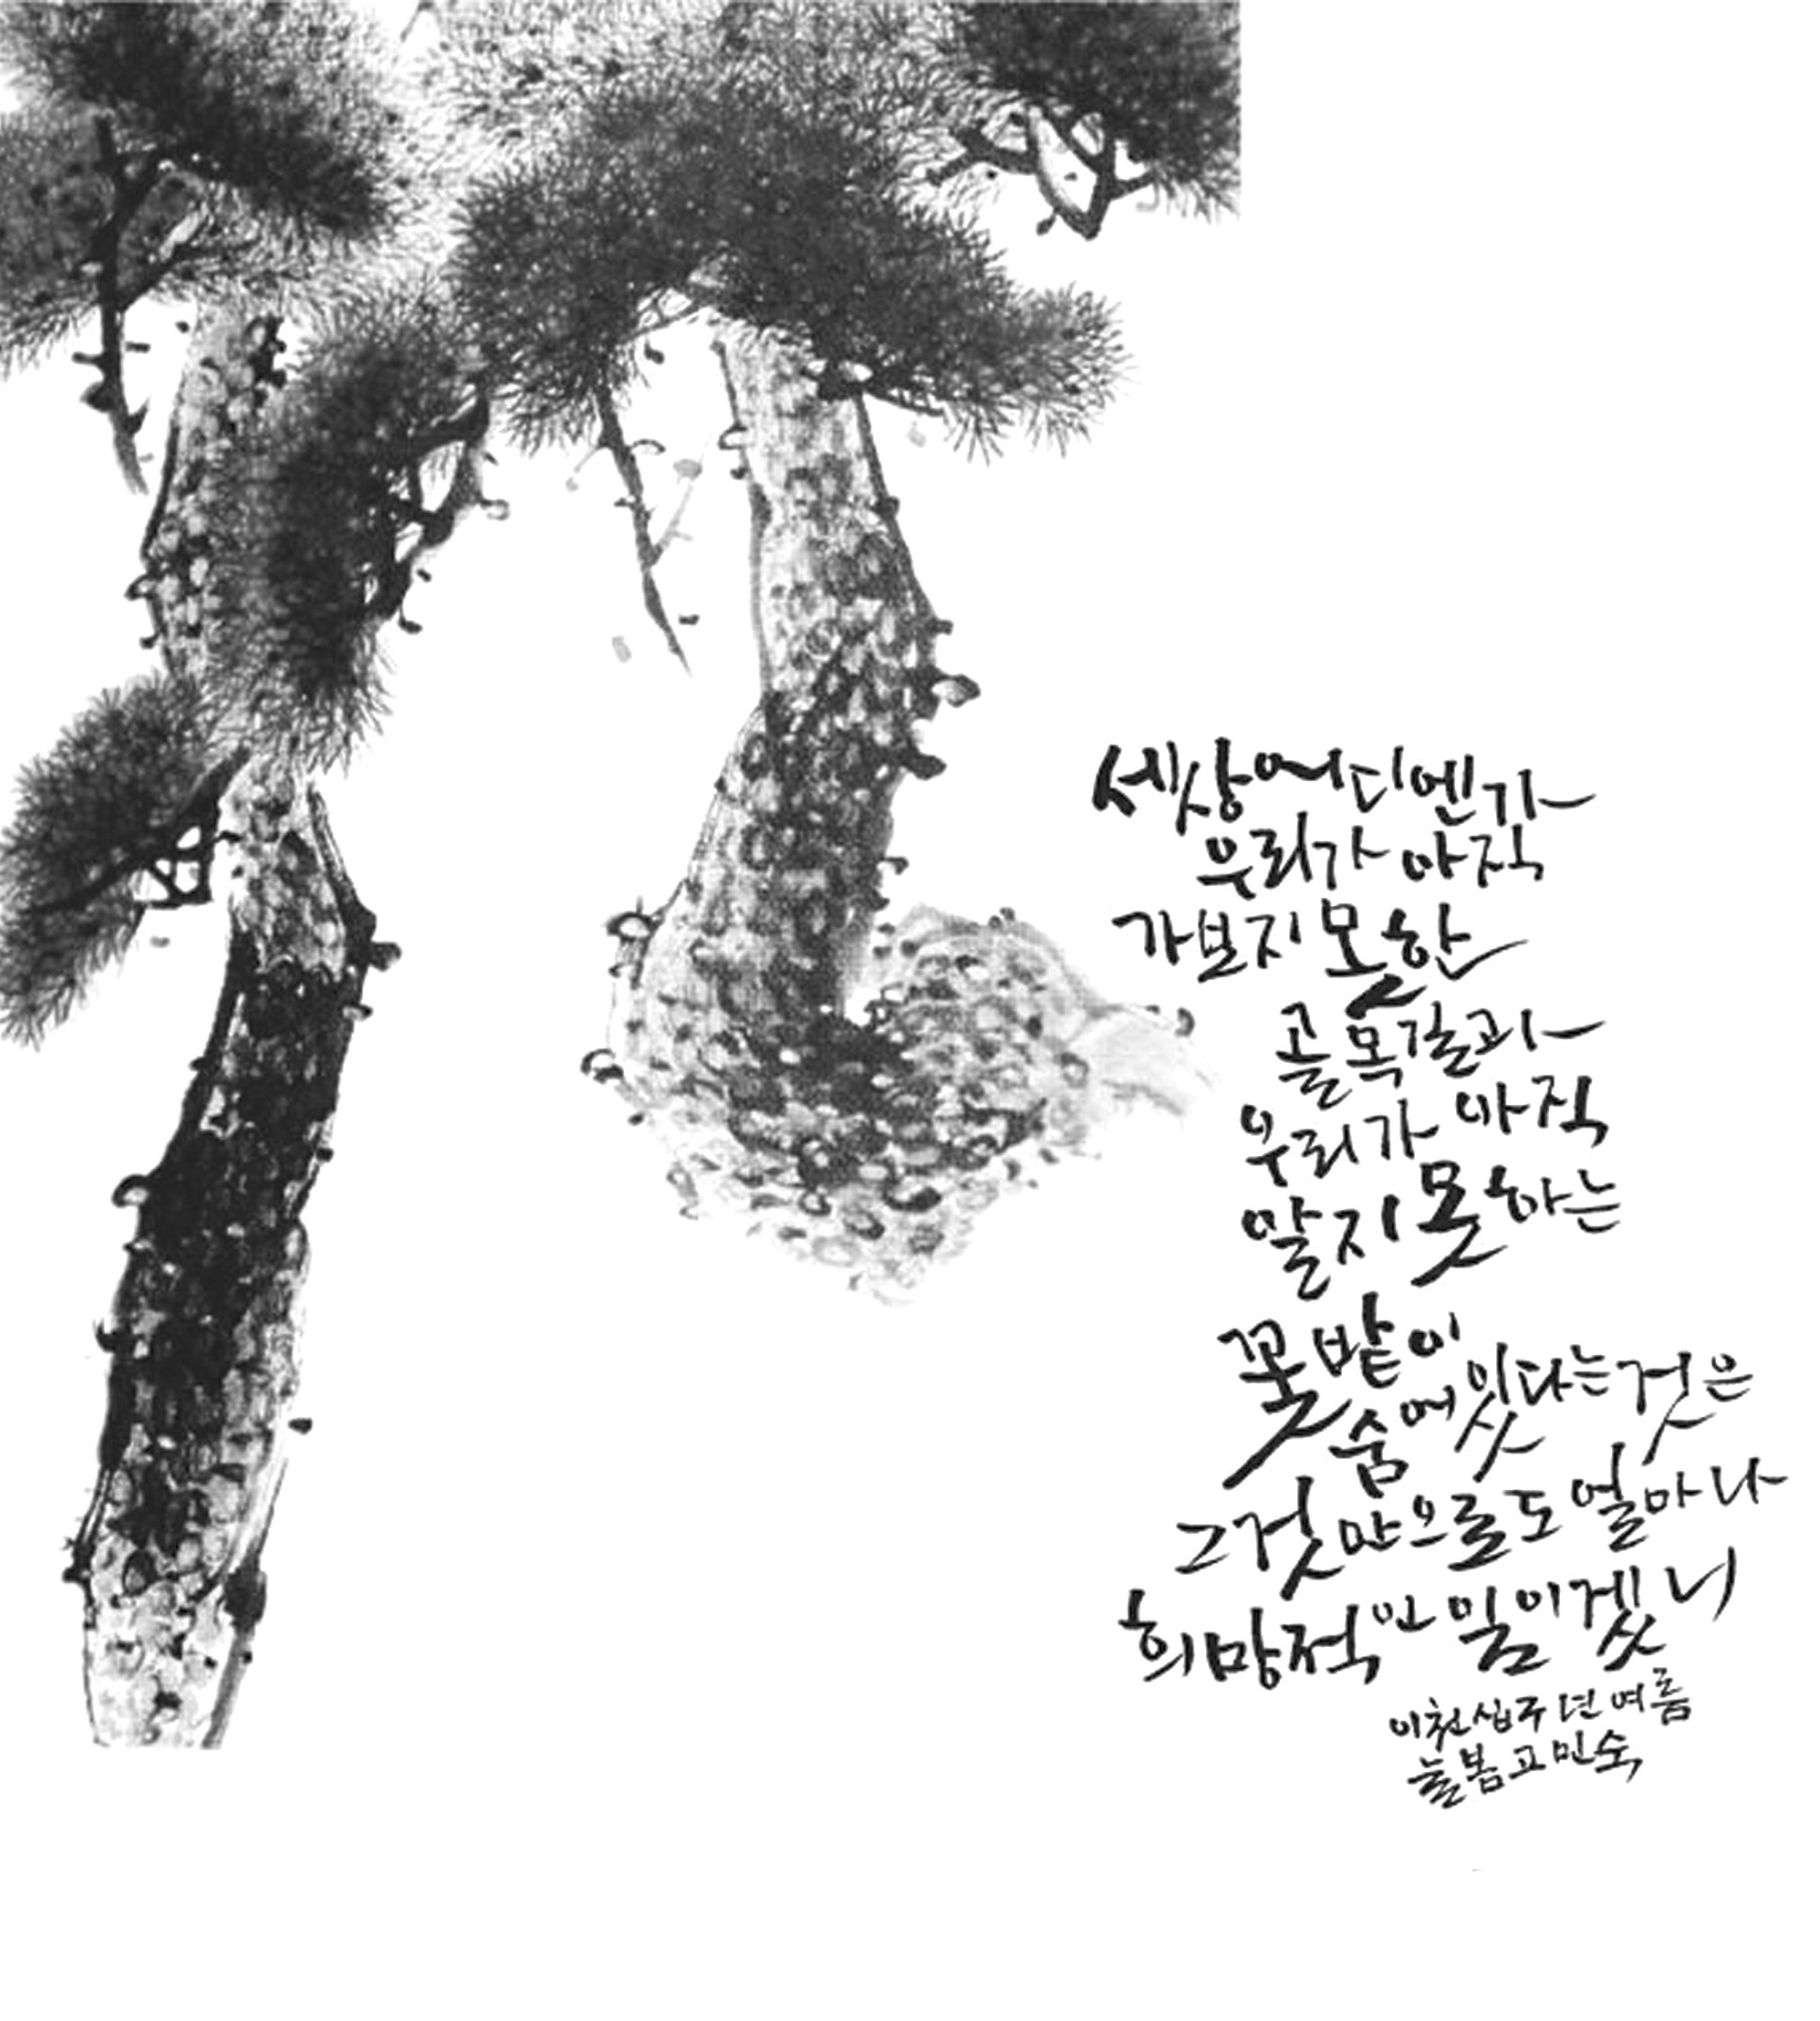 세상 어디엔가
우리가 아직
가보지 못한
골목길과
우리가 아직
알지 못하는
꽃밭이
숨어 있다는 것은
그것만으로도 얼마나
희망적인 일이겠니
이천십구년 여름
늘봄 고민숙